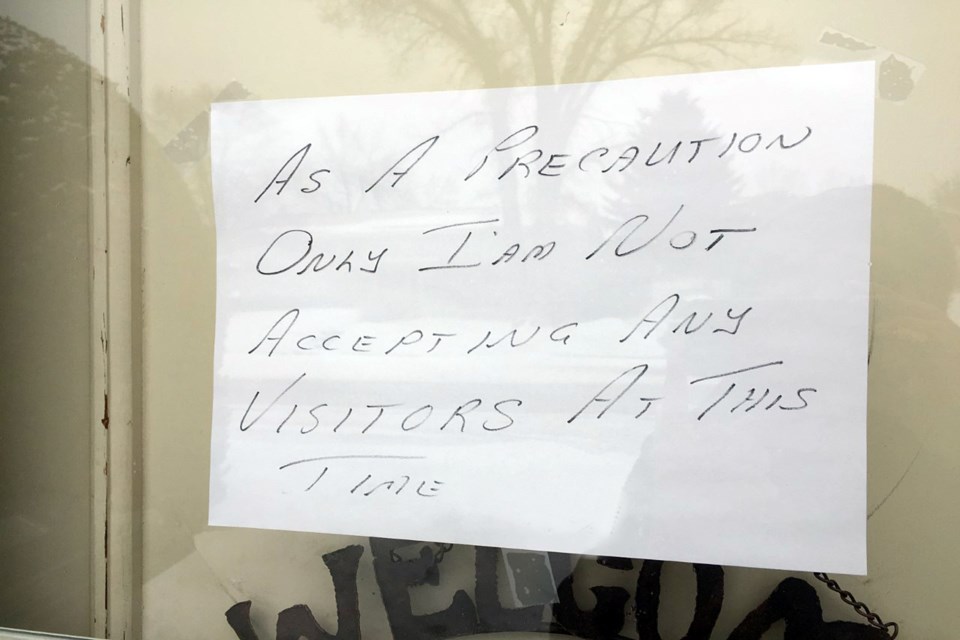 As A PRECAUTION
ONLY I'AM NOT
ACCEPTING ANY
VISITORS AT THIS
TIME
WELCO